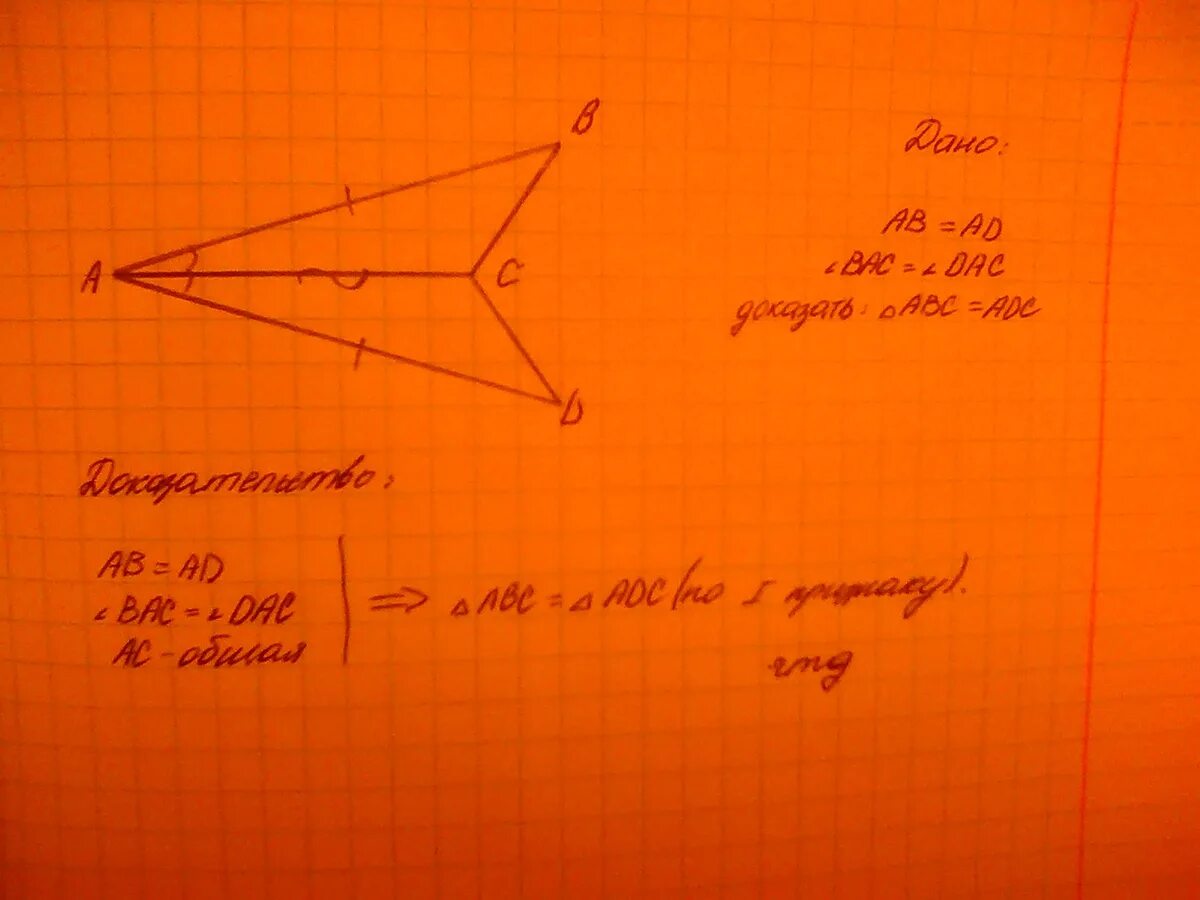 B
A
C
D
Дано:
AB = AD
∠BAC = ∠DAC
доказать: △ABC = ADC
Доказательство:
AB = AD
∠BAC = ∠DAC
AC - общая
⇒ △ABC = △ADC (по I признаку).
чтд